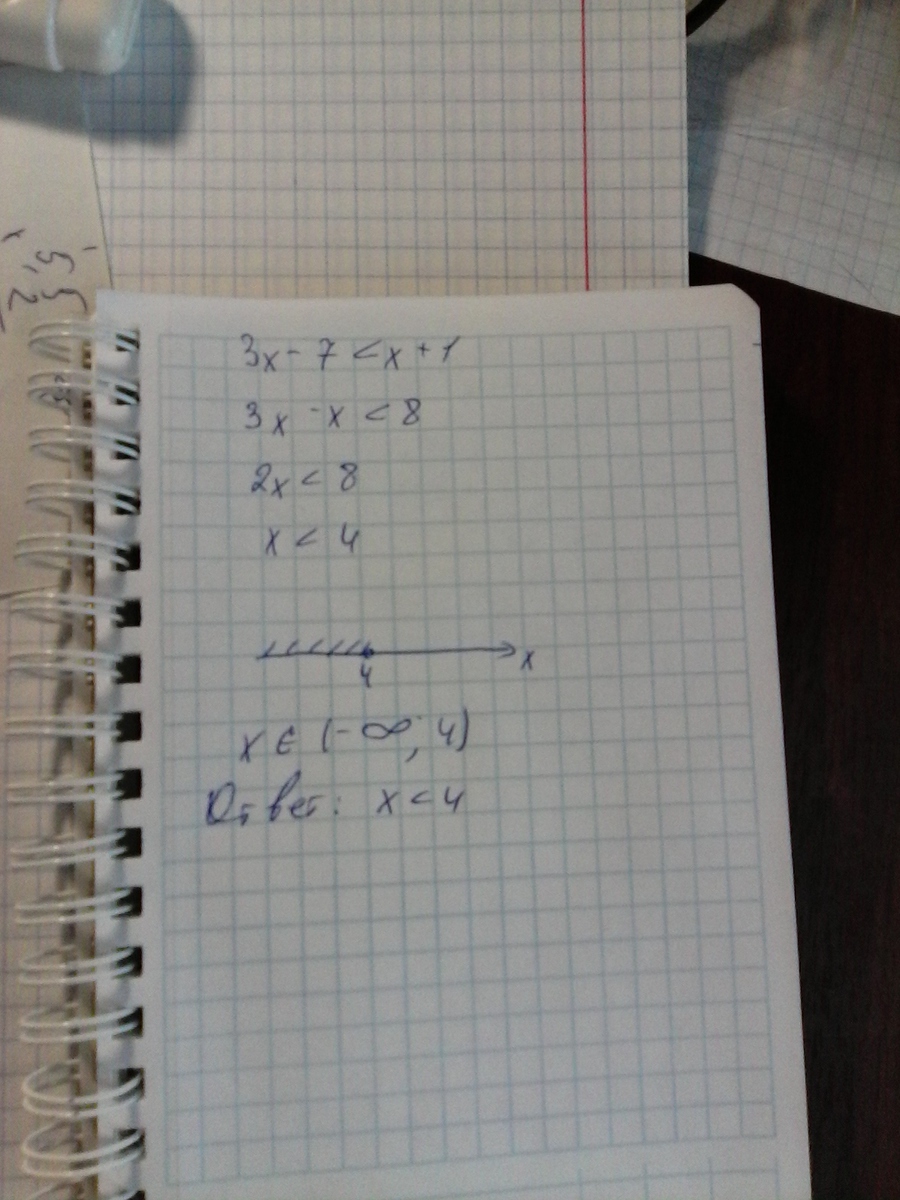 3x - 7 < x + 1
3x - x < 8
2x < 8
x < 4
4 x
x ∈ (-∞; 4)
Ответ: x < 4